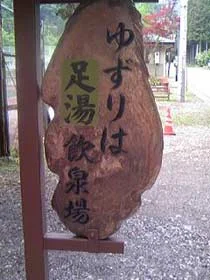 ゆずりは
足湯飲泉場